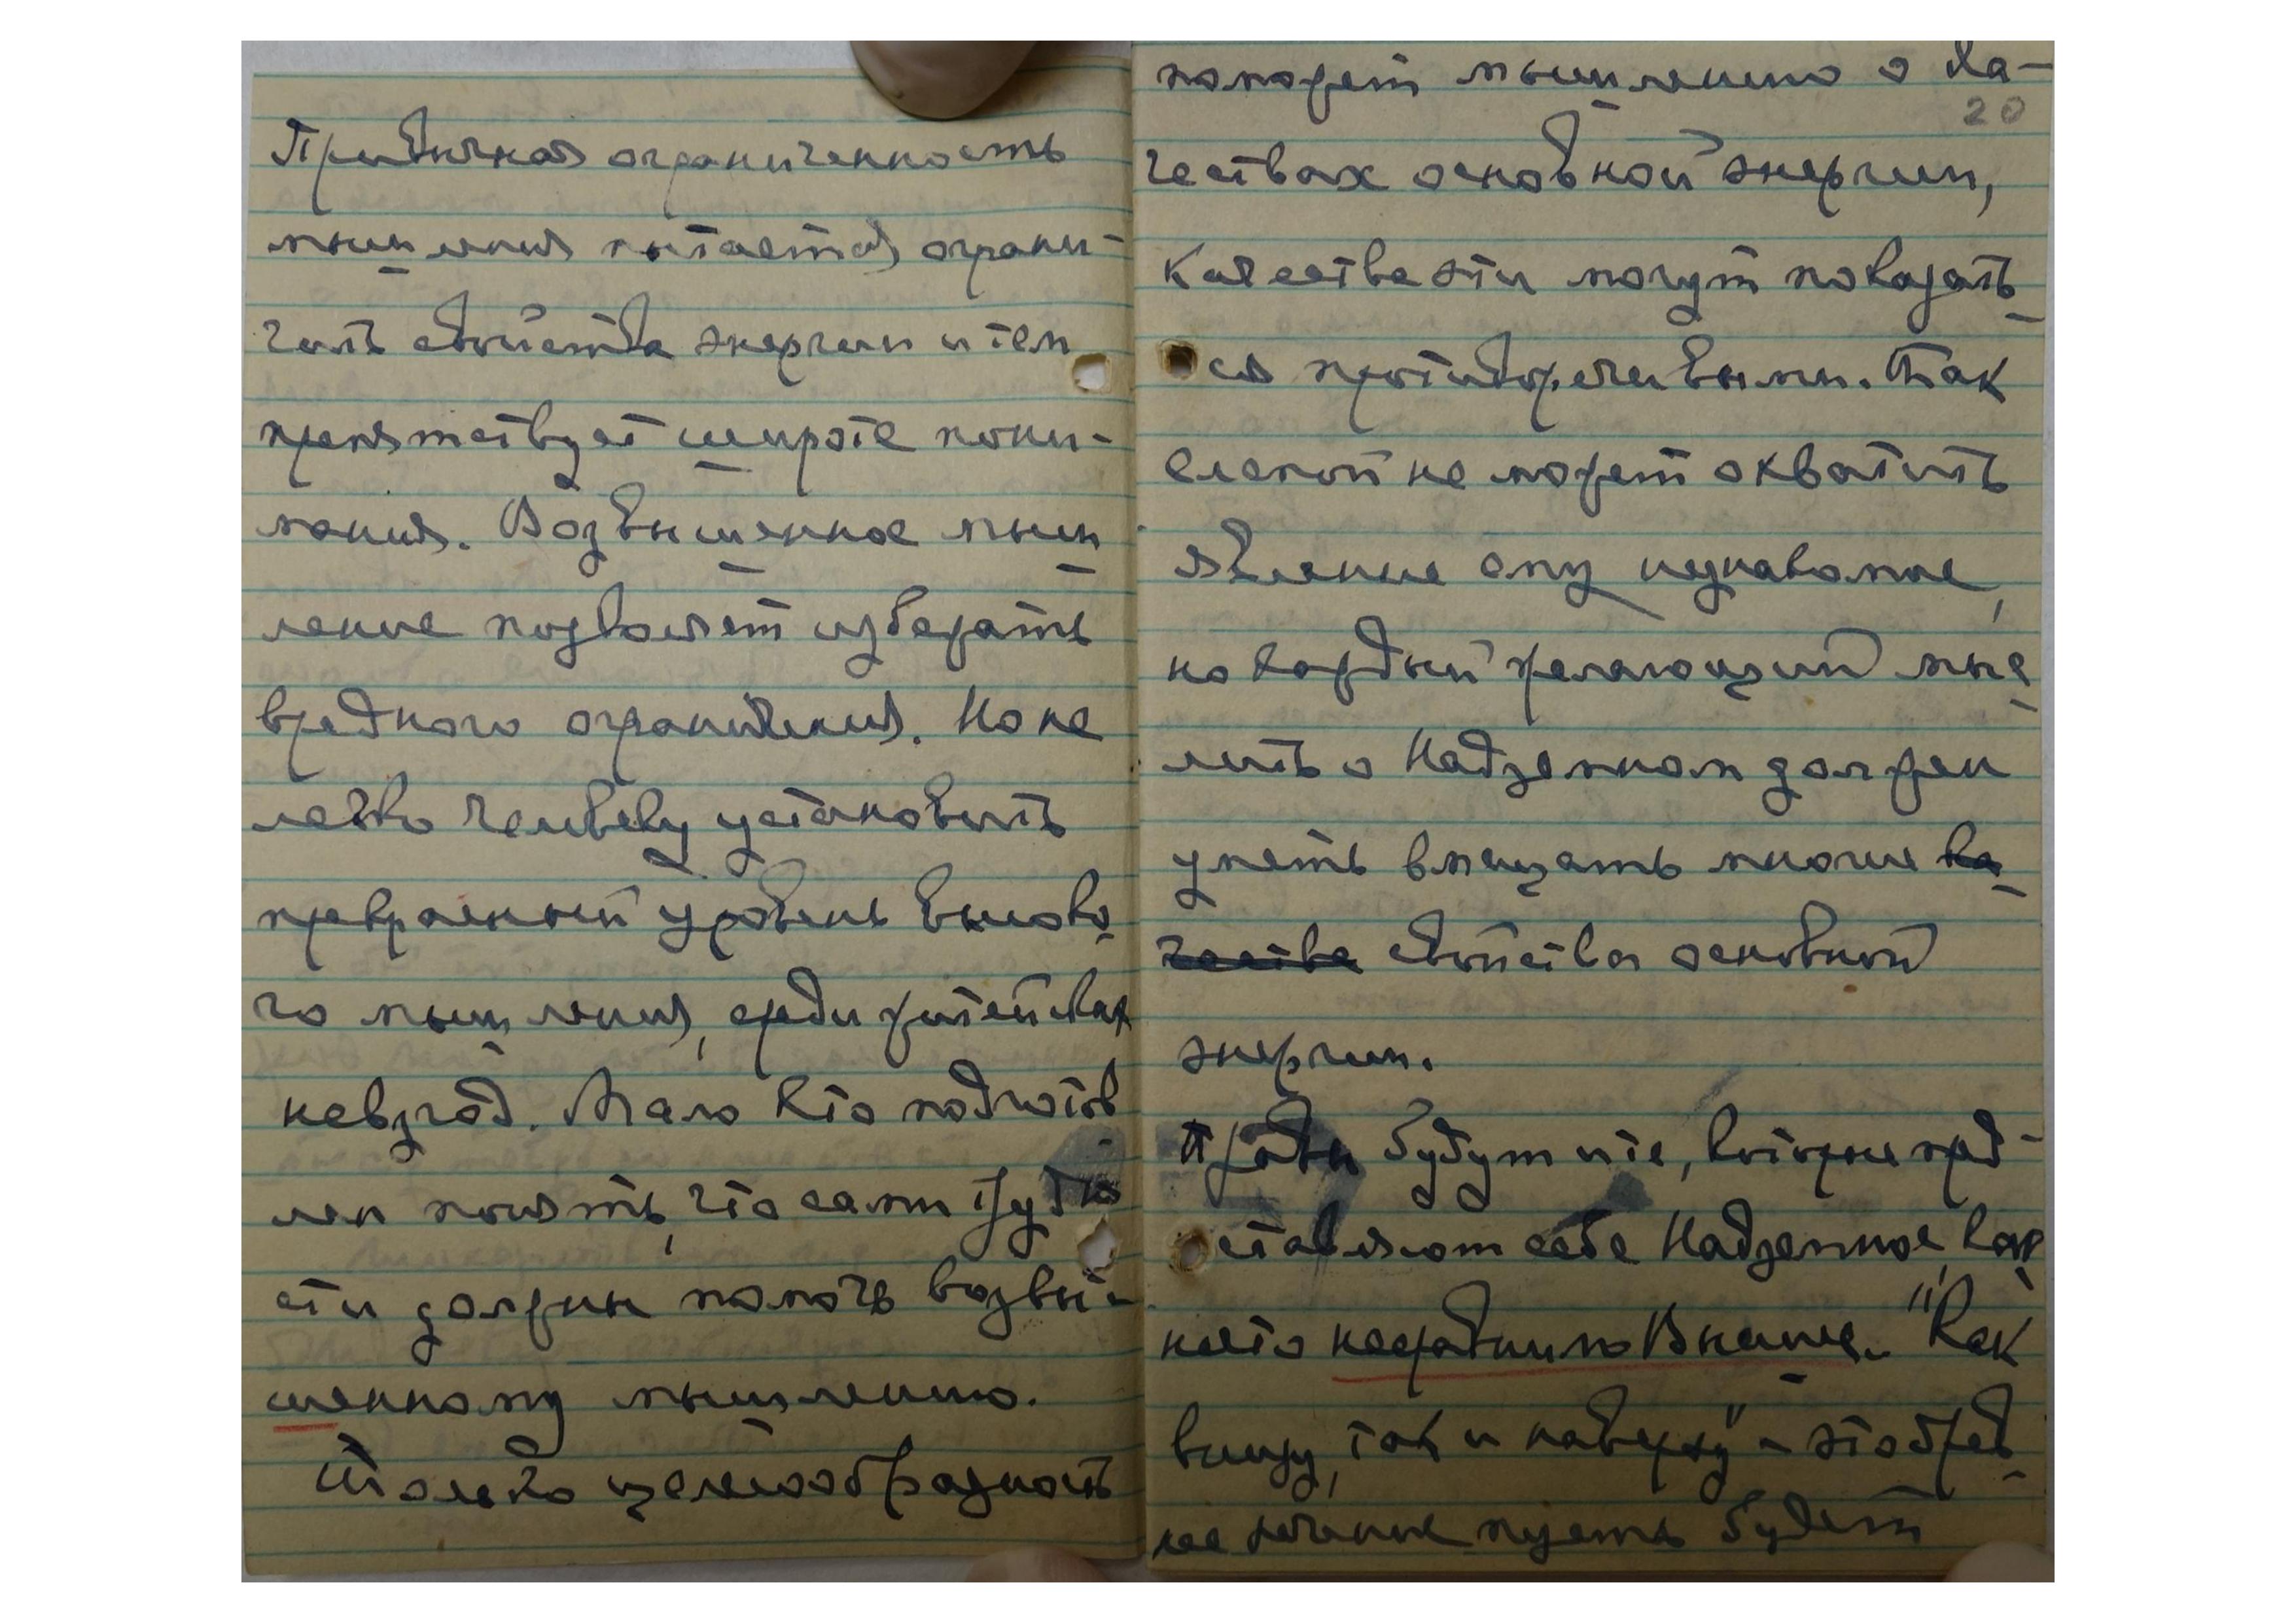 Привычная ограниченность
мышления пытается ограни-
чить свойства энергии и тем
препятствует широте пони-
мания. Возвышенное мыш
ление позволяет избегать
вредного ограничения. Но не
легко человеку установить
прекрасный уровень высоко
го мышления, среди житейских
невзгод. Мало кто подготов
лен понять, что сами трудно
сти должны помочь возвы-
шенному мышлению.
Только целесообразность
поможет мышлению о ка-
20
чествах основной энергии,
качества эти могут показать
ся противоречивыми. Так
слепой не может охватить
явление ему незнакомое,
но каждый желающий мыс
лить о Надземном должен
уметь вмещать многие ка
чества свойства основной
энергии.
Правы будут и те, которые пред-
ставляют себе Надземное, как
нечто несравнимо Высшее. "Как
внизу, так и наверху" - это древ
нее речение пусть будет